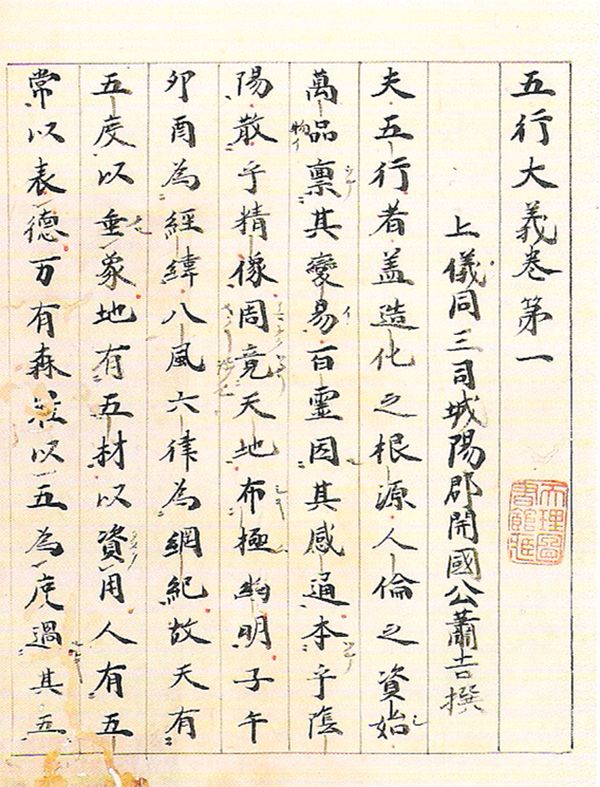 五行大義卷第一
天理圖書館藏
上儀同三司城陽郡開國公蕭吉撰
夫五行者盖造化之根源人倫之資始
萬品禀其變易百靈因其感通本乎蔭
物イ
陽散乎精像周竟天地布極幽明子午
卯酉為經緯八風六律為綱紀故天有
五度以垂象地有五材以資用人有五
常以表德万有森羅以五為度過其五